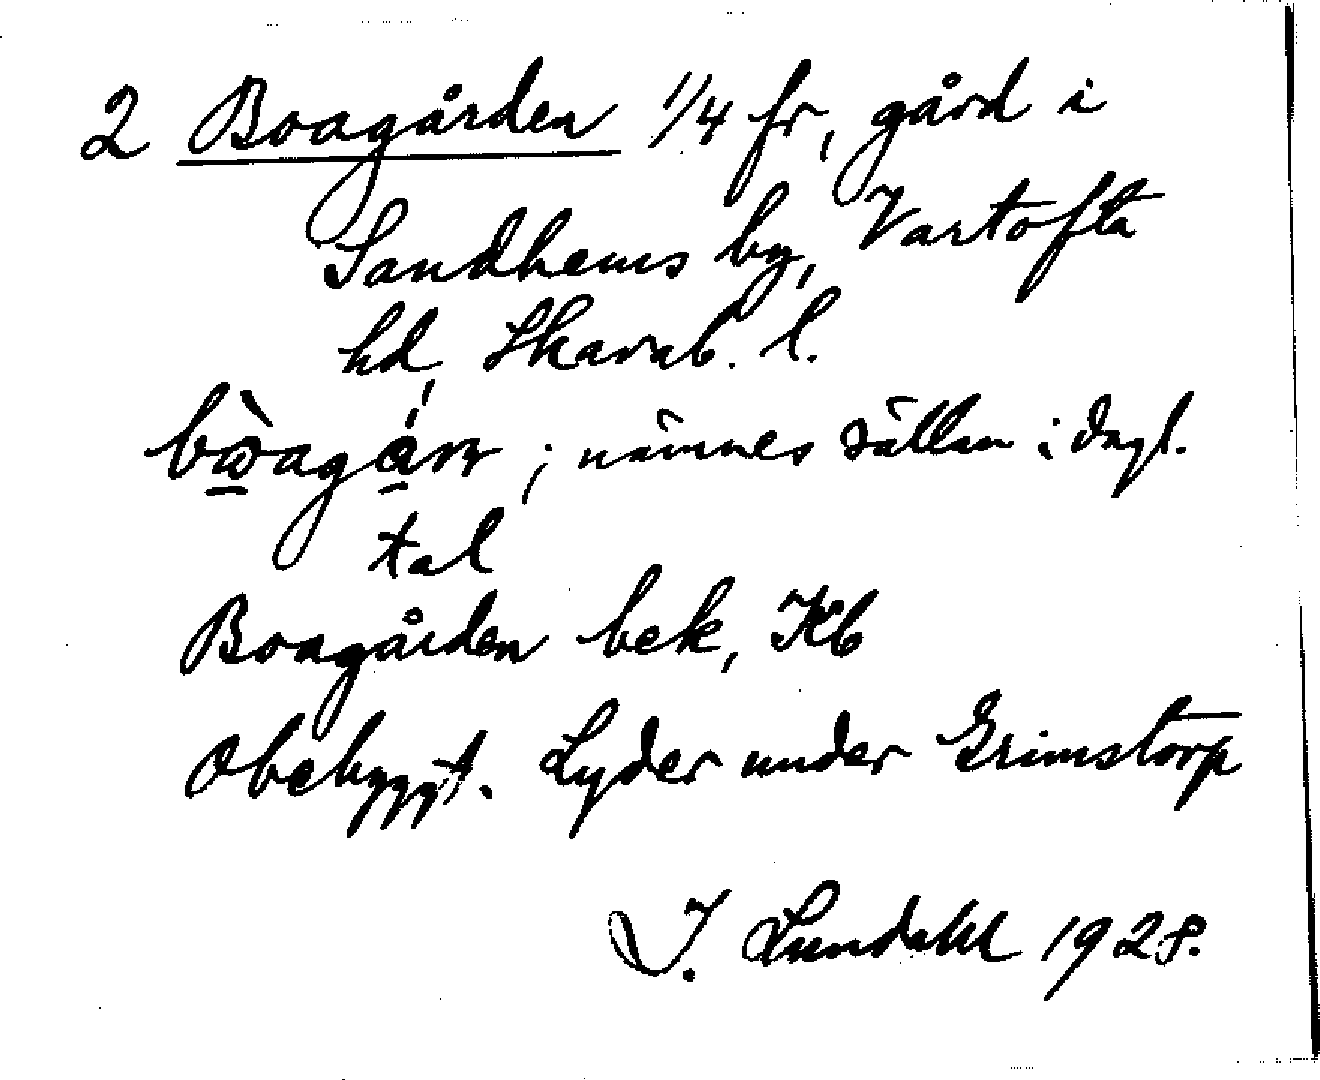 2 Boagården 1/4 fr, gård i
Sandhems by, Vartofta
hd, Skarab. l.
; nämnes sällan i dagl.
tal
Boagården bek, Kb
Obebyggt. Lyder under Grimstorp
I. Lundahl 1928.